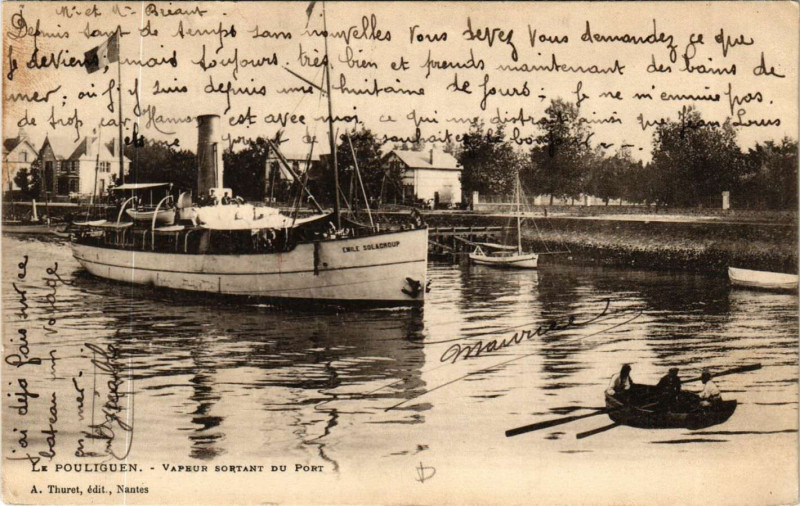 Mr et Me Briant
Depuis tant de temps sans nouvelles vous devez vous demandez ce que
je deviens, mais toujours très bien et prends maintenant des bains de
mer; où j'y suis depuis une huitaine de jours; je ne m'ennuie pas
de trop car est avec moi ce qui me distrait ainsi que Jean, Louis
vous souhaite le bonjour
EMILE SOLACROUP
Maurice
j'ai déjà fais sur ce
bateau un voyage
en mer.
LE POULIGUEN. - VAPEUR SORTANT DU PORT
A. Thuret, édit., Nantes